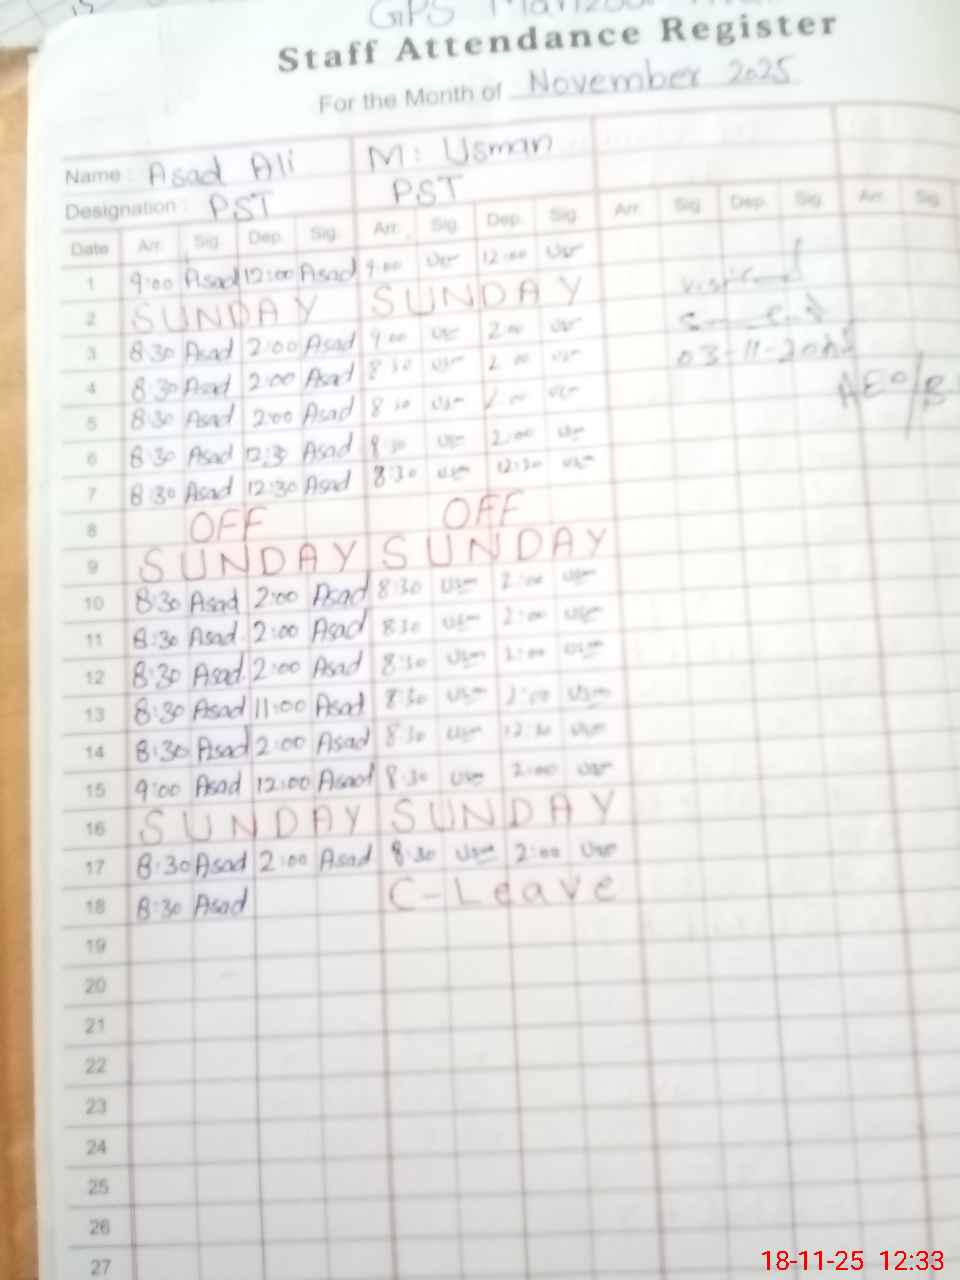 GPS
Staff Attendance Register
For the Month of November 2025
Name: Asad Ali M: Usman
Designation: PST PST
Date Arr. Sig. Dep. Sig. Arr. Sig. Dep. Sig. Arr. Sig. Dep. Sig. Arr. Sig.
1 9:00 Asad 12:00 Asad 9:00 12:00
2 SUNDAY SUNDAY
3 8:30 Asad 2:00 Asad 9:00 2:00
4 8:30 Asad 2:00 Asad 8:30 Usm 2:00 Usm
03-11-20
5 8:30 Asad 2:00 Asad 8:30 Usm
AEO/B
6 8:30 Asad 12:3 Asad 8:30 Usm 2:00 Usm
7 8:30 Asad 12:30 Asad 8:30 Usm 12:30 Usm
8 OFF OFF
9 SUNDAY SUNDAY
10 8:30 Asad 2:00 Asad 8:30 Usm 2:00 Usm
11 8:30 Asad 2:00 Asad 8:30 Usm 2:00 Usm
12 8:30 Asad 2:00 Asad 8:30 Usm 2:00 Usm
13 8:30 Asad 11:00 Asad 8:30 Usm 2:00 Usm
14 8:30 Asad 2:00 Asad 8:30 Usm 12:30 Usm
15 9:00 Asad 12:00 Asad 8:30 Usm 2:00 Usm
16 SUNDAY SUNDAY
17 8:30 Asad 2:00 Asad 8:30 Usm 2:00 Usm
18 8:30 Asad C-Leave
19
20
21
22
23
24
25
26
27
18-11-25 12:33